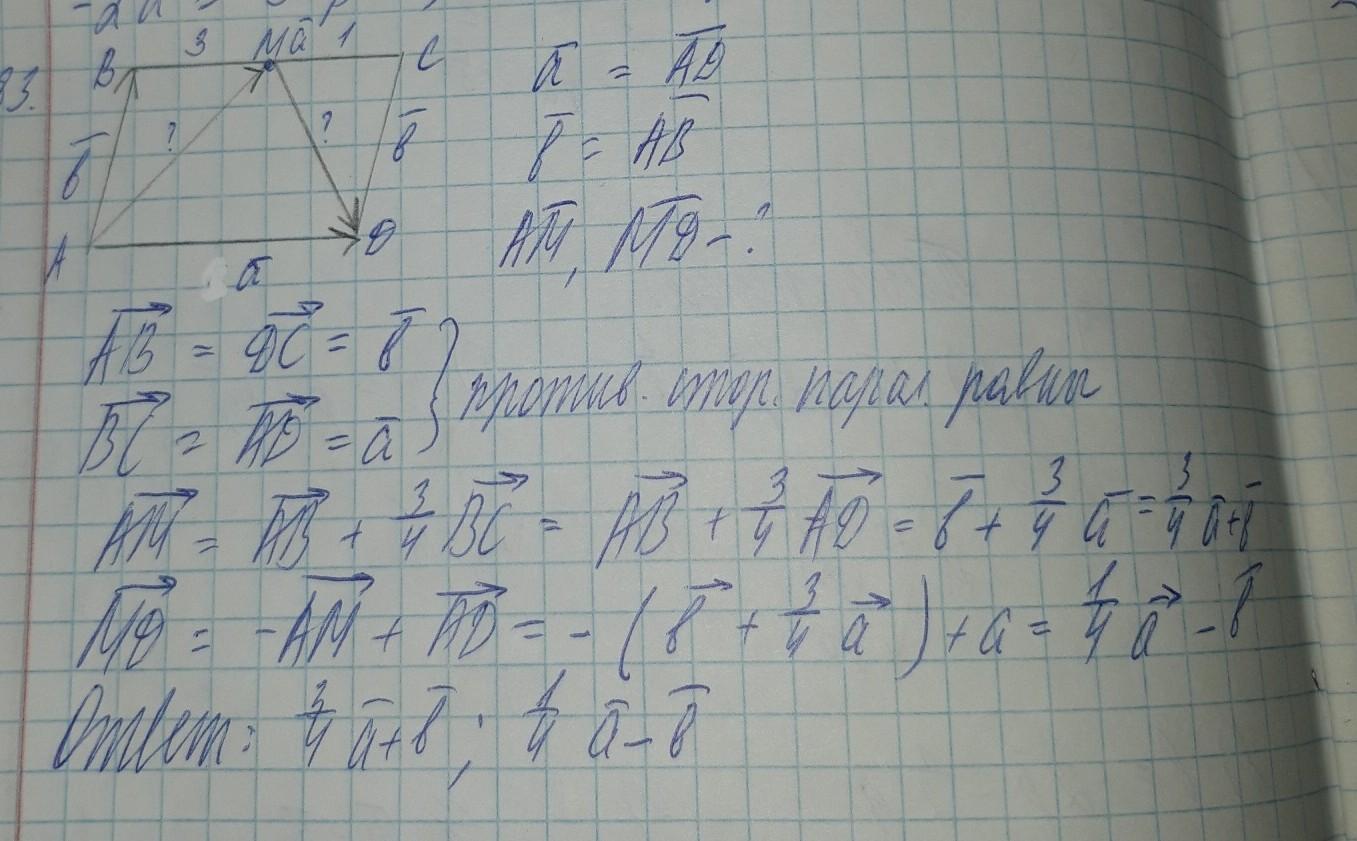 93.
B 3 M a̅ 1 C
b̅ ? ? b̅
A D
a̅
a̅ = AD̅
b̅ = AB̅
AM̅, MD̅ - ?
AB⃗ = DC⃗ = b̅
BC⃗ = AD⃗ = a̅ } против. стор. парал. равны
AM⃗ = AB⃗ + 3/4 BC⃗ = AB⃗ + 3/4 AD⃗ = b̅ + 3/4 a̅ = 3/4 a̅ + b̅
MD⃗ = -AM⃗ + AD⃗ = -(b⃗ + 3/4 a⃗) + a = 1/4 a⃗ - b̅
Ответ: 3/4 a̅ + b̅; 1/4 a̅ - b̅